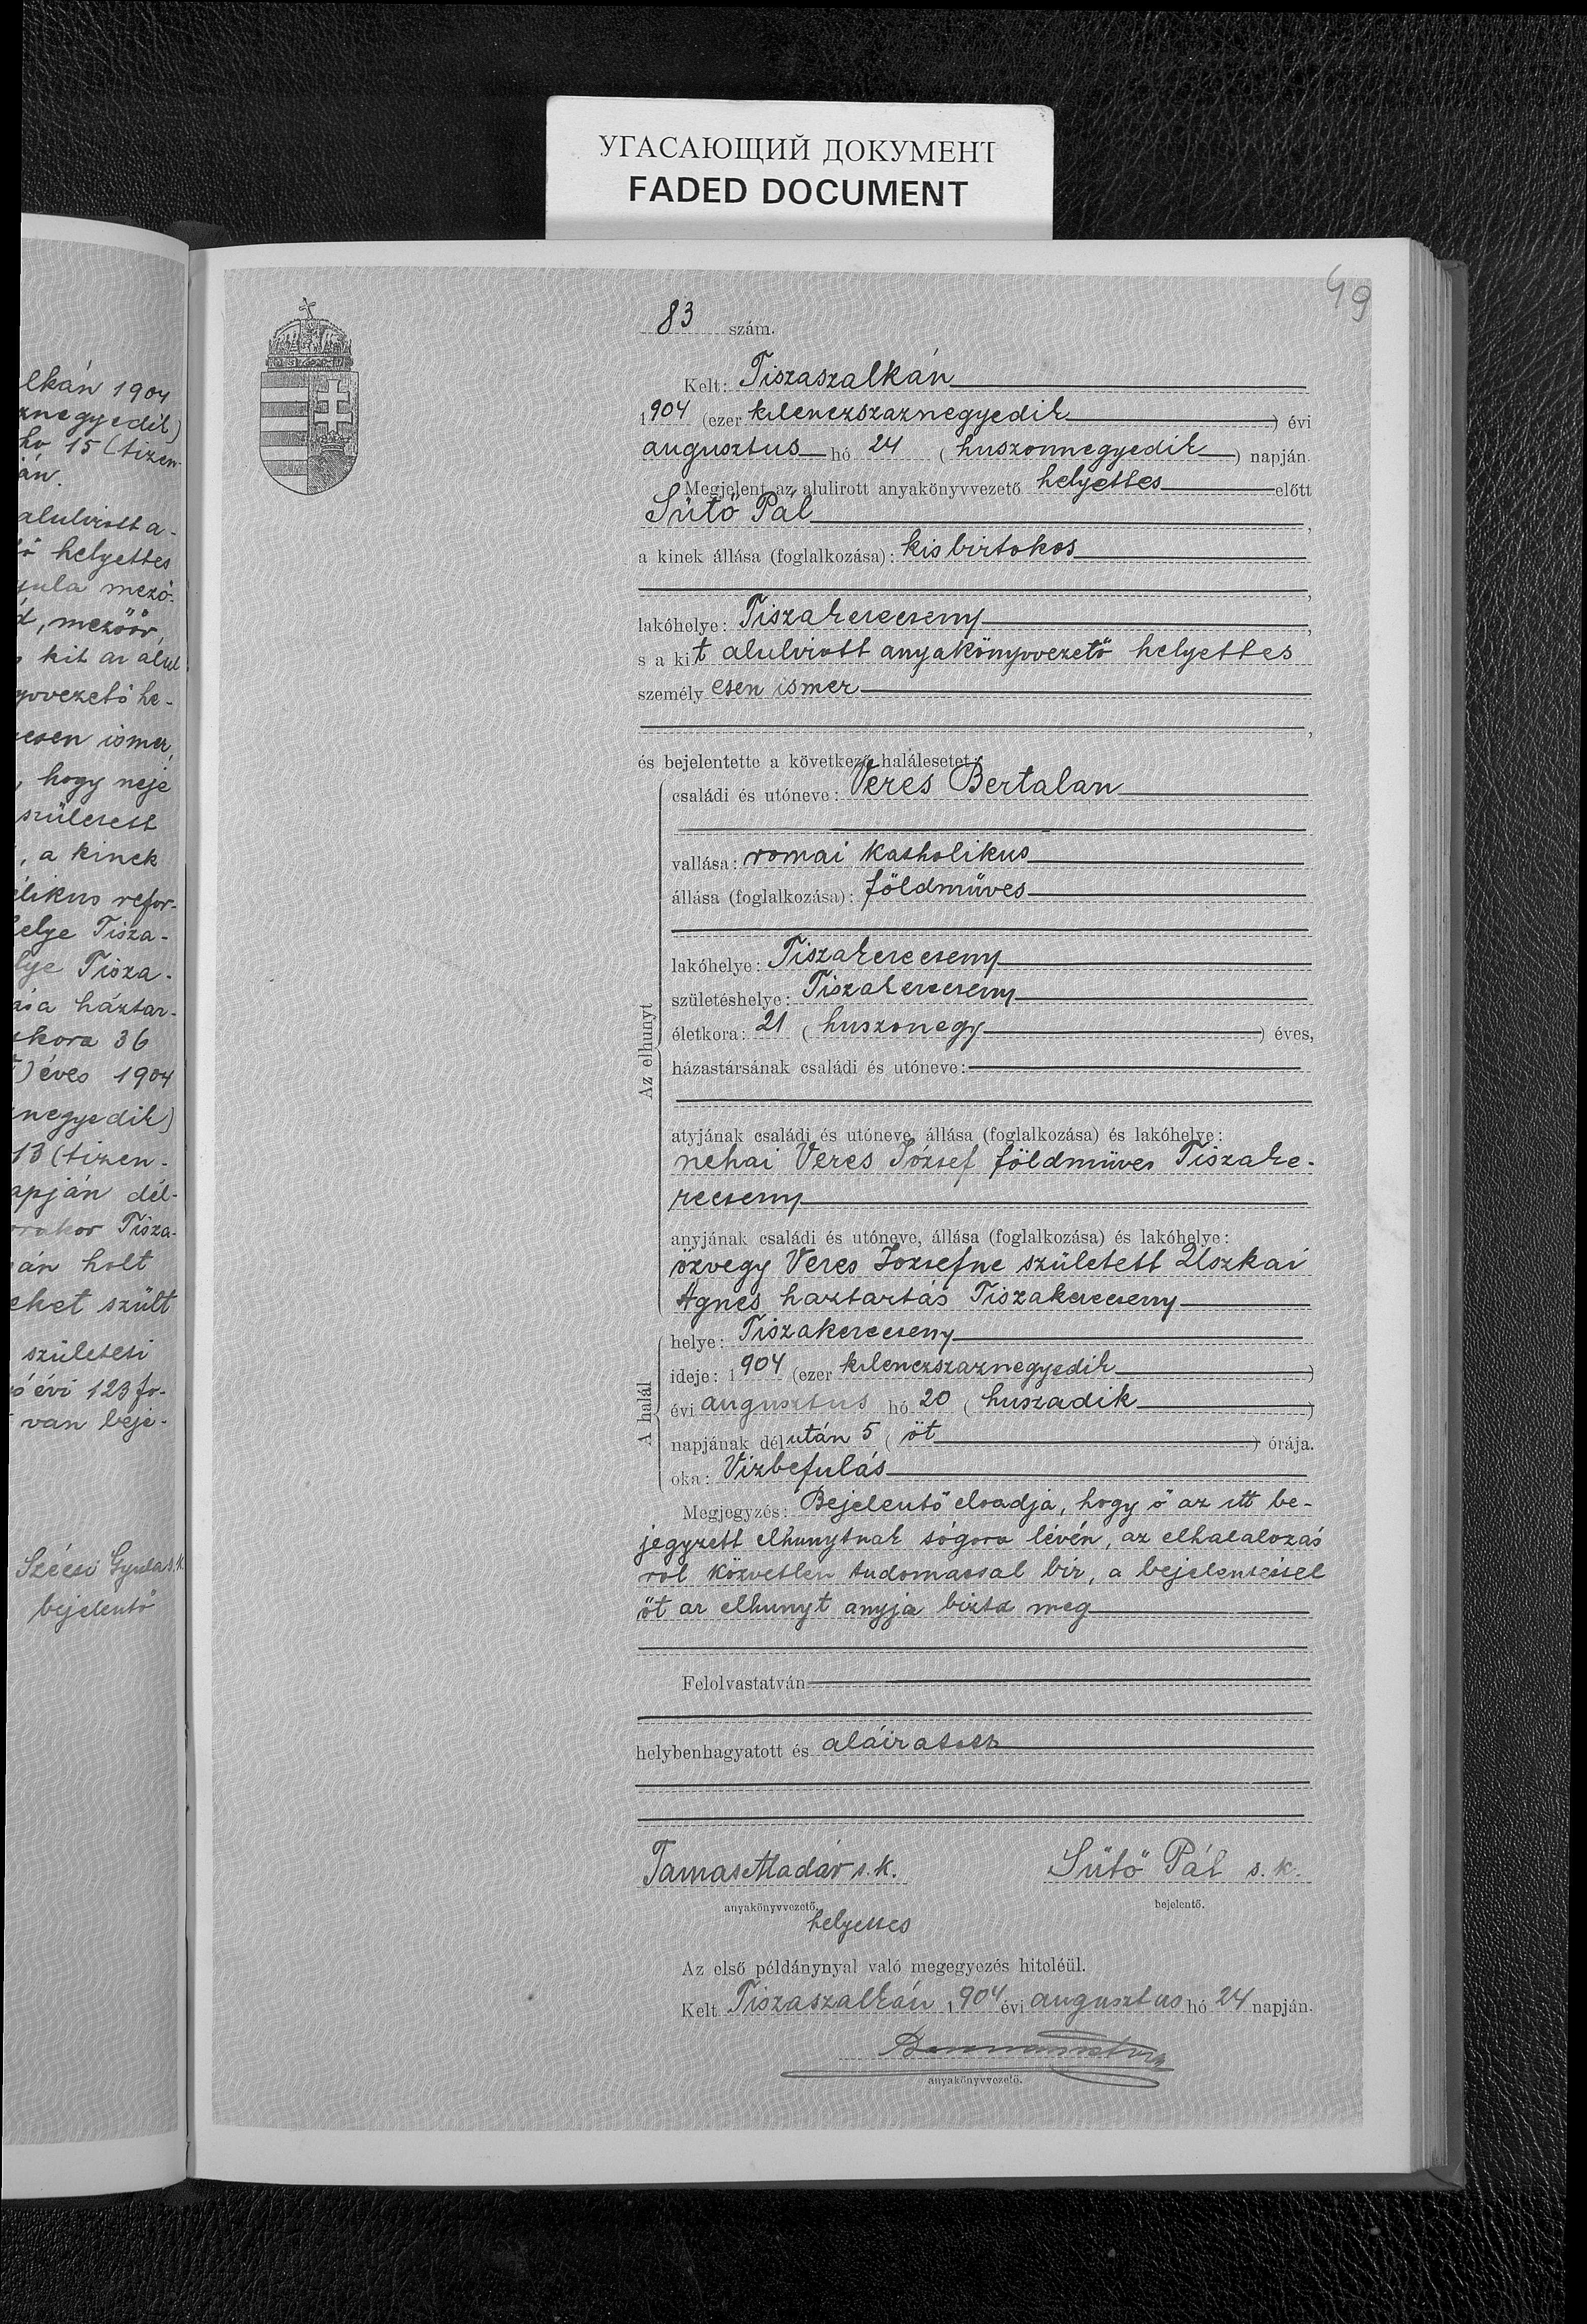 УГАСАЮЩИЙ ДОКУМЕНТ
FADED DOCUMENT
49
83 szám.
Kelt: Tiszaszalkán
1904 (ezer kilenczszaznegyedik) évi
augusztus hó 24 (huszonnegyedik) napján.
Megjelent az alulirott anyakönyvvezető helyettes előtt
Sütő Pál,
a kinek állása (foglalkozása): kisbirtokos
,
lakóhelye: Tiszakerecseny,
s a kit alulirott anyakönyvvezető helyettes
személyesen ismer
,
és bejelentette a következő halálesetet:
Az elhunyt
családi és utóneve: Veres Bertalan
vallása: romai katholikus
állása (foglalkozása): földmüves
lakóhelye: Tiszakerecseny
születéshelye: Tiszakerecseny
életkora: 21 (huszonegy) éves,
házastársának családi és utóneve:
atyjának családi és utóneve, állása (foglalkozása) és lakóhelye:
nehai Veres József földmüves Tiszake-
recseny
anyjának családi és utóneve, állása (foglalkozása) és lakóhelye:
özvegy Veres Jozsefne született Uszkai
Agnes haztartás Tiszakerecseny
A halál
helye: Tiszakerecseny
ideje: 1904 (ezer kilenczszaznegyedik)
évi augusztus hó 20 (huszadik)
napjának délután 5 (öt) órája.
oka: Vizbefulás
Megjegyzés: Bejelentő eloadja, hogy ő az itt be-
jegyzett elhunytnak sógora lévén, az elhalalozás
rol közvetlen tudomassal bir, a bejelentéssel
őt az elhunyt anyja bizta meg
Felolvastatván
helybenhagyatott és aláiratott
Tamas Aladár s. k. Sütő Pál s. k.
anyakönyvvezető, bejelentő.
helyettes
Az első példánynyal való megegyezés hiteléül.
Kelt Tiszaszalkán 1904 évi augusztus hó 24 napján.
anyakönyvvezető.
lkán 1904
znegyedik)
ho 15 (tizen-
án.
alulirott a-
ő helyettes
yula mező-
d, mezőőr,
s kit az alul
yvvezető he-
esen ismer,
, hogy neje
született
, a kinek
élikus refor-
helye Tisza-
lye Tisza-
ása háztar-
tkora 36
t) éves 1904
negyedik)
13 (tizen-
apján dél-
órakor Tisza-
án holt
eket szült
születési
ó évi 123 fo-
van beje-
Szécsi Gyula s. k.
bejelentő